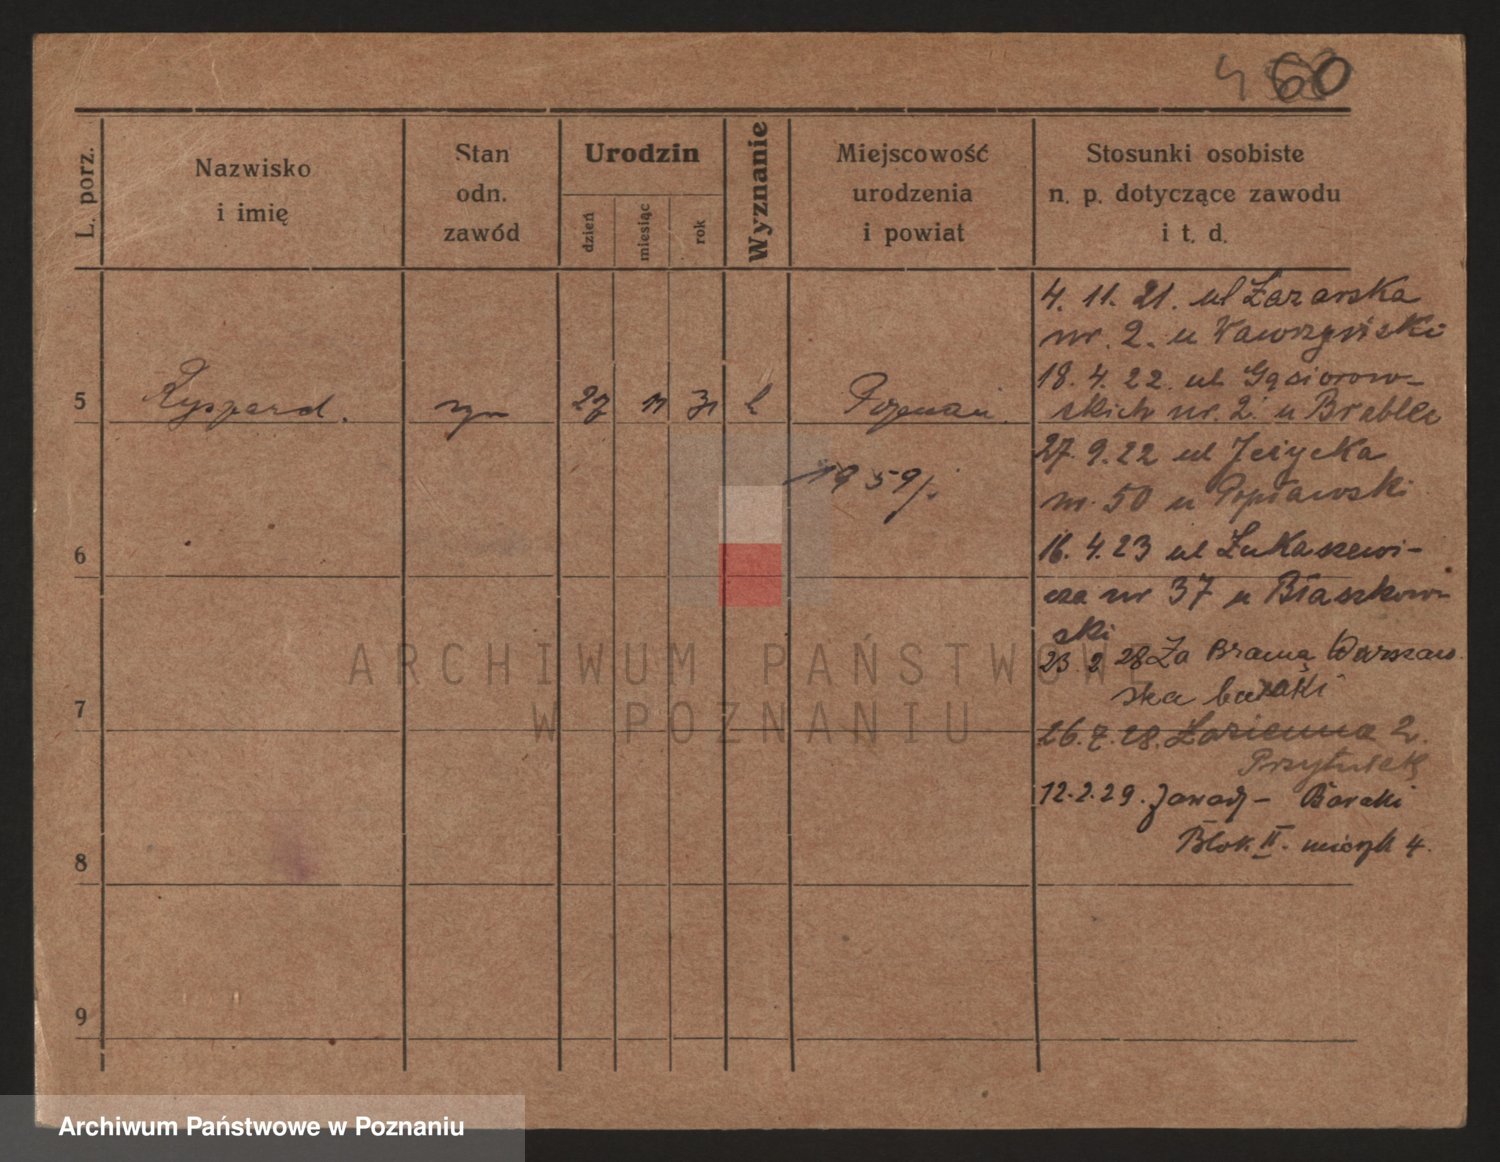 460
L. porz.
Nazwisko
i imię
Stan
odn.
zawód
Urodzin
dzień
miesiąc
rok
Wyznanie
Miejscowość
urodzenia
i powiat
Stosunki osobiste
n. p. dotyczące zawodu
i t. d.
4. 11. 21. ul Łazarska
nr. 2. u Wawrzyński
18. 4. 22. ul Gąsiorow-
skich nr. 2. u
27. 9. 22 ul Jeżycka
nr. 50 u Popławski
16. 4. 23 ul Łukaszewi-
cza nr 37 u Błaszkow-
ski
23 2 28 Za Bramą Warszaw
ska baraki
26. 7. 28. Łazienna 2.
Przytułek
12. 2. 29. Zawady - Baraki
Blok II. mieszk 4.
5 Ryszard. syn 27 11 31 Poznań
1959
6
7
8
9
ARCHIWUM PAŃSTWOWE
W POZNANIU
Archiwum Państwowe w Poznaniu